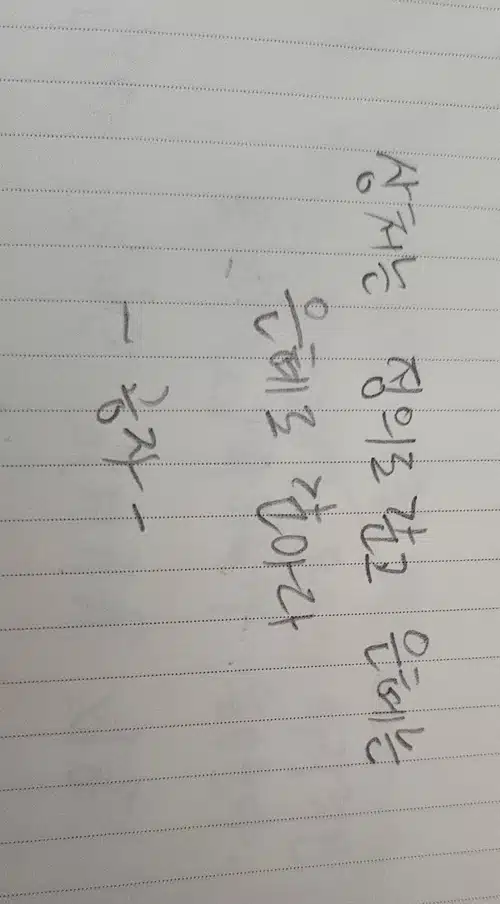 상처는 정의로 갚고 은혜는
은혜로 갚아라
- 공자 -